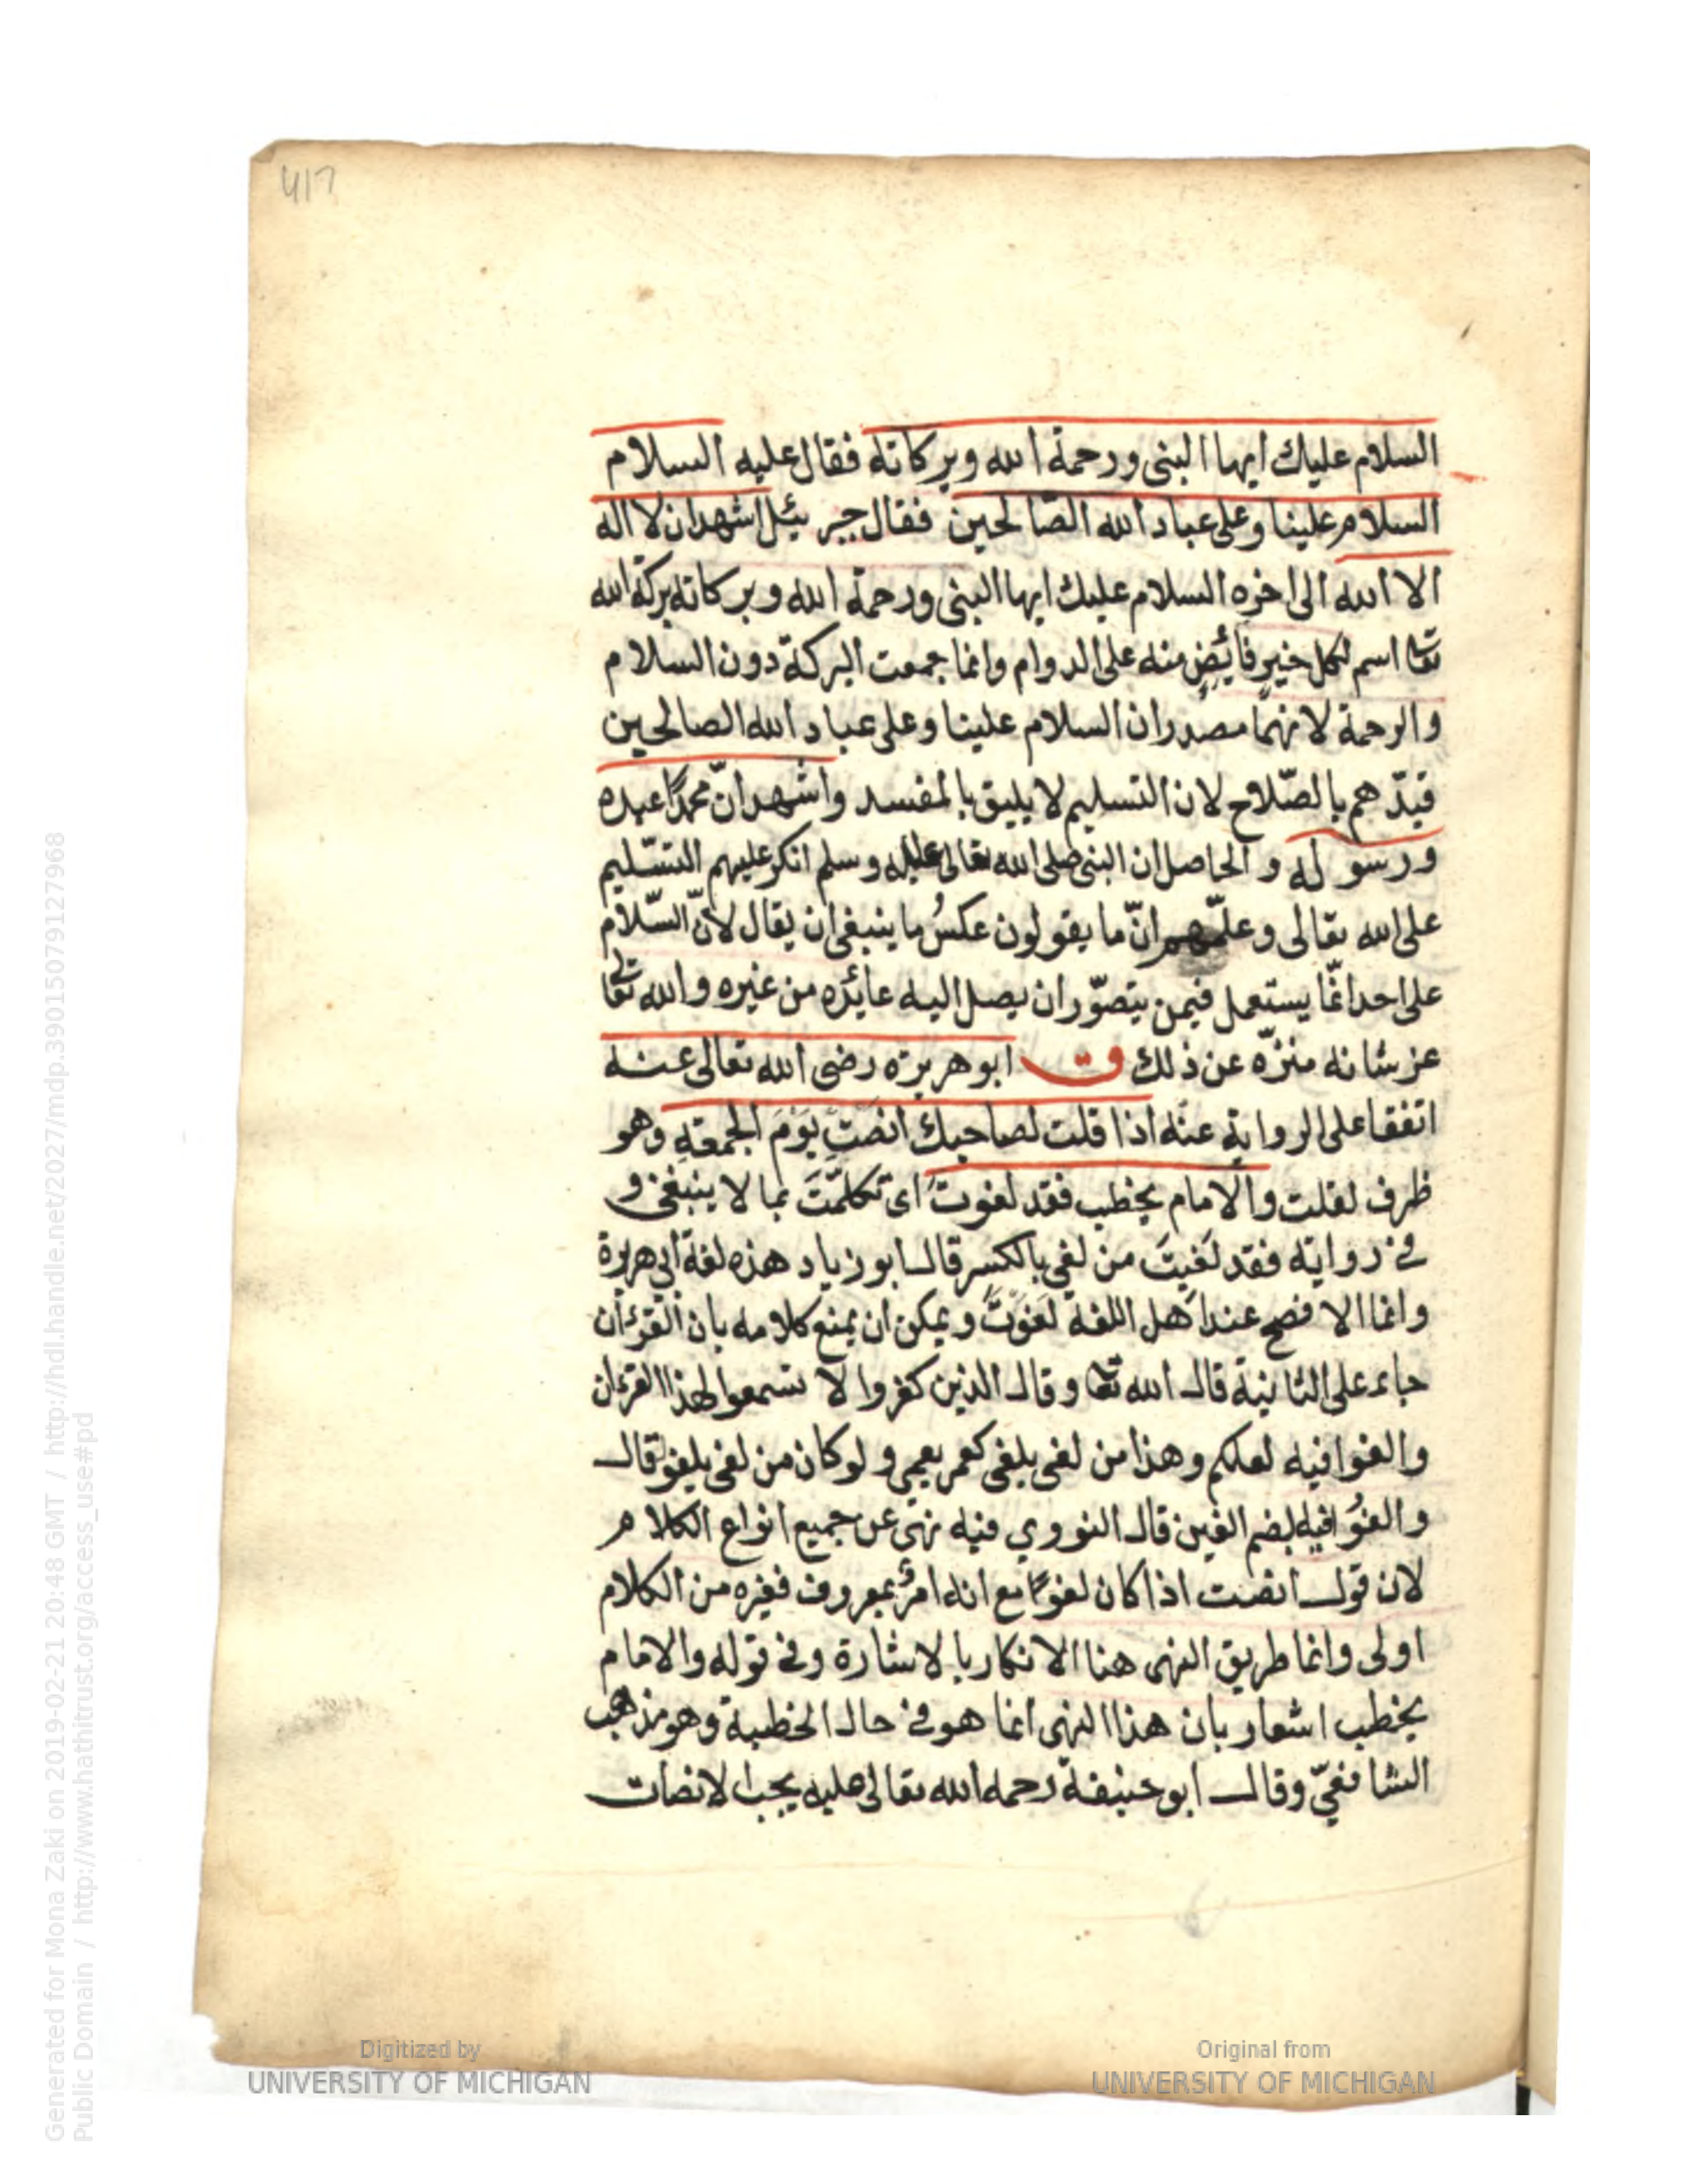 417
السلام عليك ايها النبى ورحمة الله وبركاته فقال عليه السلام
السلام علينا وعلى عباد الله الصالحين فقال جبرئيل اشهد ان لا اله
الا الله الى اخره السلام عليك ايها النبى ورحمة الله وبركاته بركة الله
تعا اسم لكل خير فائض منه على الدوام وانما جمعت البركة دون السلام
والرحمة لانهما مصدران السلام علينا وعلى عباد الله الصالحين
قيدّهم بالصّلاح لان التسليم لا يليق بالمفسد واشهد انّ محمدًا عبده
ورسوله و الحاصل ان النبى صلى الله تعالى عليه وسلم انكر عليهم التسّليم
على الله تعالى وعلّمهم انّ ما يقولون عكسُ ما ينبغى ان يقال لانّ السّلام
على احد انمّا يستعمل فيمن يتصوّر ان يصل اليه عائده من غيره والله تعا
عز شانه منزّه عن ذلك ق ابو هريرة رضى الله تعالى عنه
اتفقا على الرواية عنه اذا قلت لصاحبك انصت يَوْمَ الجمعةِ وهو
ظرف لقلت والامام يخطب فقد لغوتَ اى تكلمّتَ بما لا ينبغى و
فى رواية فقد لَغِيتَ من لغى بالكسر قال ابو زياد هذه لغة ابى هريرة
وانما الافصح عند اهل اللغة لَغَوْتَ ويمكن ان يمنع كلامه بان القرءان
جاء على الثانية قال الله تعا وقال الذين كفروا لا تسمعوا لهذا القرءان
والغوا فيه لعلكم وهذا من لغى يلغى كعمى يعمى ولو كان من لغى يلغو لقال
والغُوا فيه بضم الغين قال النووي فيه نهى عن جميع انواع الكلام
لان قول انصت اذا كان لغوًا مع انه امرٌ بمعروف فغيره من الكلام
اولى وانما طريق النهى هنا الانكار بالاشارة وفى قوله والامام
يخطب اشعار بان هذا النهى انما هو فى حال الخطبة وهو مذهب
الشافعيّ وقال ابو حنيفة رحمه الله تعالى عليه يجب الانصات
Generated for Mona Zaki on 2019-02-21 20:48 GMT / http://hdl.handle.net/2027/mdp.39015079127968
Public Domain / http://www.hathitrust.org/access_use#pd
Digitized by
UNIVERSITY OF MICHIGAN
Original from
UNIVERSITY OF MICHIGAN